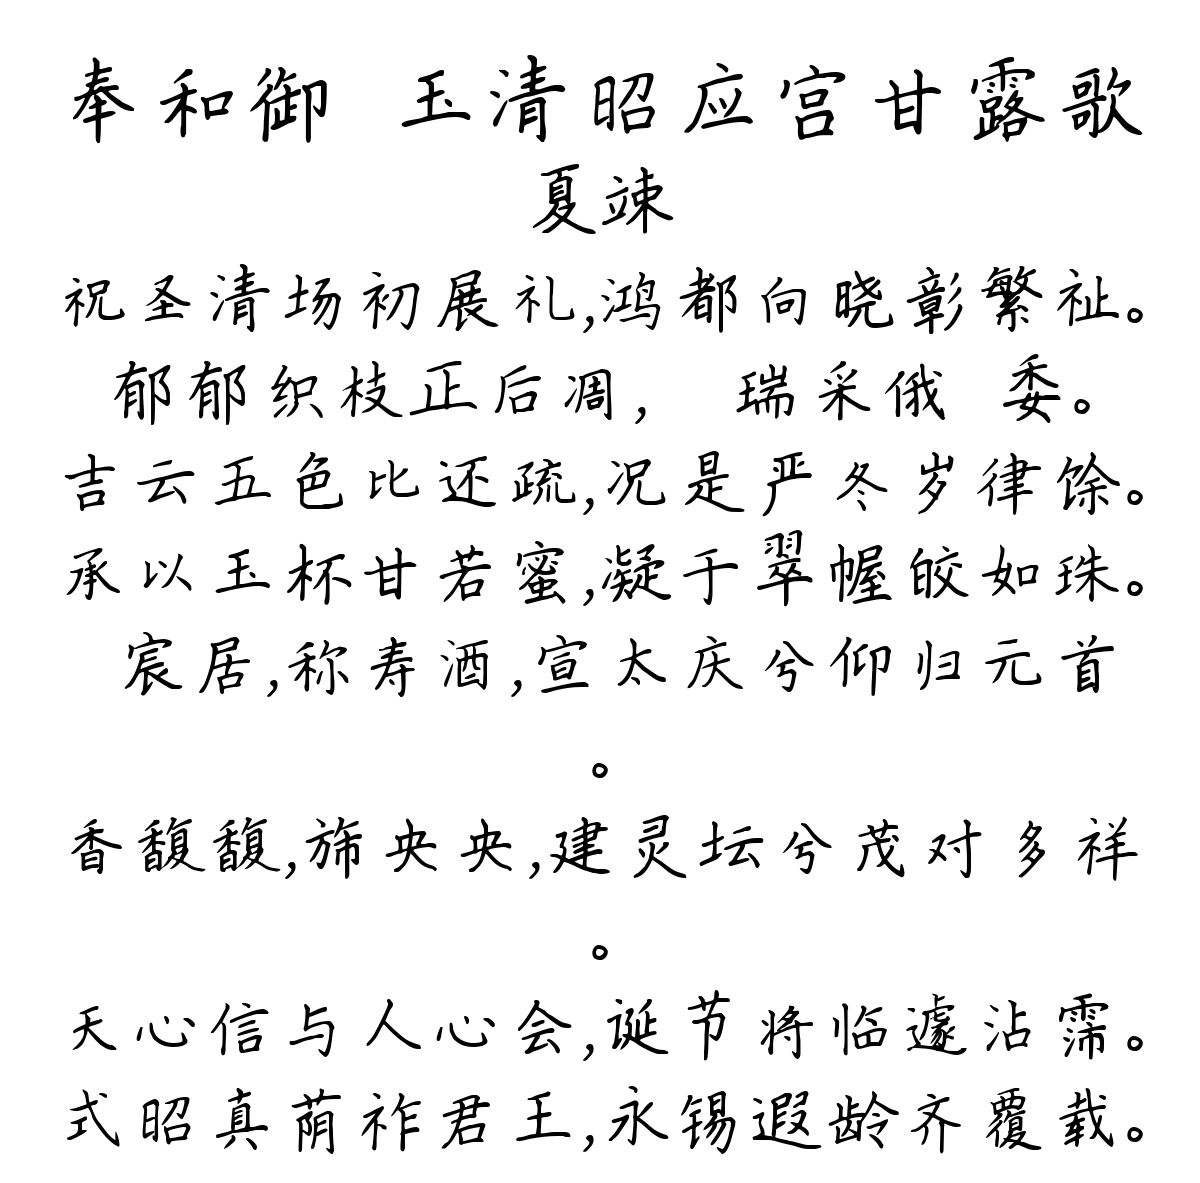 奉和御 玉清昭应宫甘露歌
夏竦
祝圣清场初展礼,鸿都向晓彰繁祉。
郁郁织枝正后凋, 瑞采俄 委。
吉云五色比还疏,况是严冬岁律馀。
承以玉杯甘若蜜,凝于翠幄皎如珠。
宸居,称寿酒,宣太庆兮仰归元首
。
香馥馥,旆央央,建灵坛兮茂对多祥
。
天心信与人心会,诞节将临遽沾霈。
式昭真荫祚君王,永锡遐龄齐覆载。